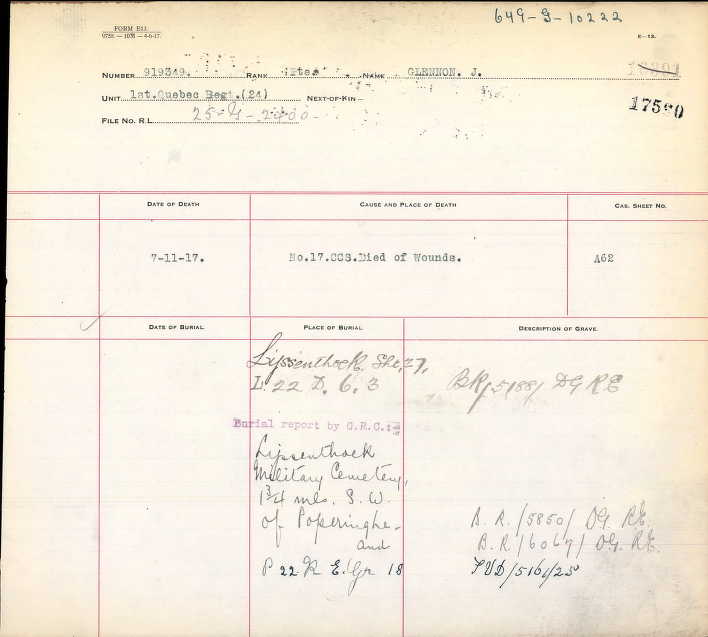 649-G-10222
FORM E11
E-13.
NUMBER 919349. RANK Pte. NAME GLENNON. J.
UNIT 1st.Quebec Regt.(24) NEXT-OF-KIN
17580
FILE NO. R.L. 25-G-2400-
DATE OF DEATH CAUSE AND PLACE OF DEATH CAS. SHEET NO.
7-11-17. No.17.CCS.Died of Wounds. A62
DATE OF BURIAL PLACE OF BURIAL DESCRIPTION OF GRAVE.
Lijssenthoek. Sht. 27,
L. 22 D. 6. 3 BR/5188/ DGRE
Burial report by G.R.C.:
Lijssenthoek
Military Cemetery,
1¾ mls. S.W.
of Poperinghe- B.R./5850/ DG. RE.
and B.R./6067/ DG. RE.
P 22. R E. Gr 18 FUD/5161/25